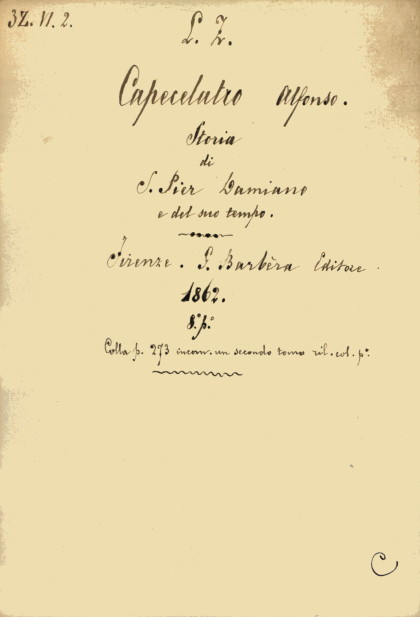 3Z. VI. 2.
L. Z.
Capecelatro Alfonso.
Storia
di
S. Pier Damiano
e del suo tempo.
Firenze. G. Barbèra Editore
1862.
8.º p.º
Colla p. 273 incom. un secondo tomo ril. col. pº.
C